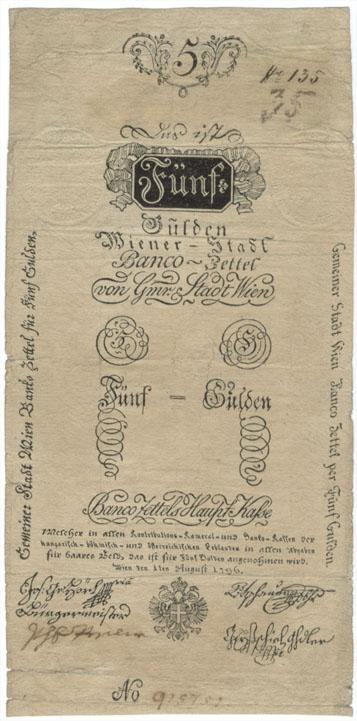 5
No 135
Das ist
Fünf
Gulden
Wiener-Stadt
Banco-Zettel
von Gmr. Stadt Wien
Fünf - Gulden
Banco Zettels Haupt Kasse
Welcher in allen Kontributions-Kameral- und Banko-Kassen der
Hungarisch-Böhmisch- und Oesterreichischen Erblanden in allen Abgaben
für baares Geld, das ist für Fünf Gulden angenohmen wird.
Wien den 1ten August 1796.
Gemeiner Stadt Wien Banko Zettel für Fünf Gulden.
Gemeiner Stadt Wien Banco Zettel per Fünf Gulden
Bürgermeister
No